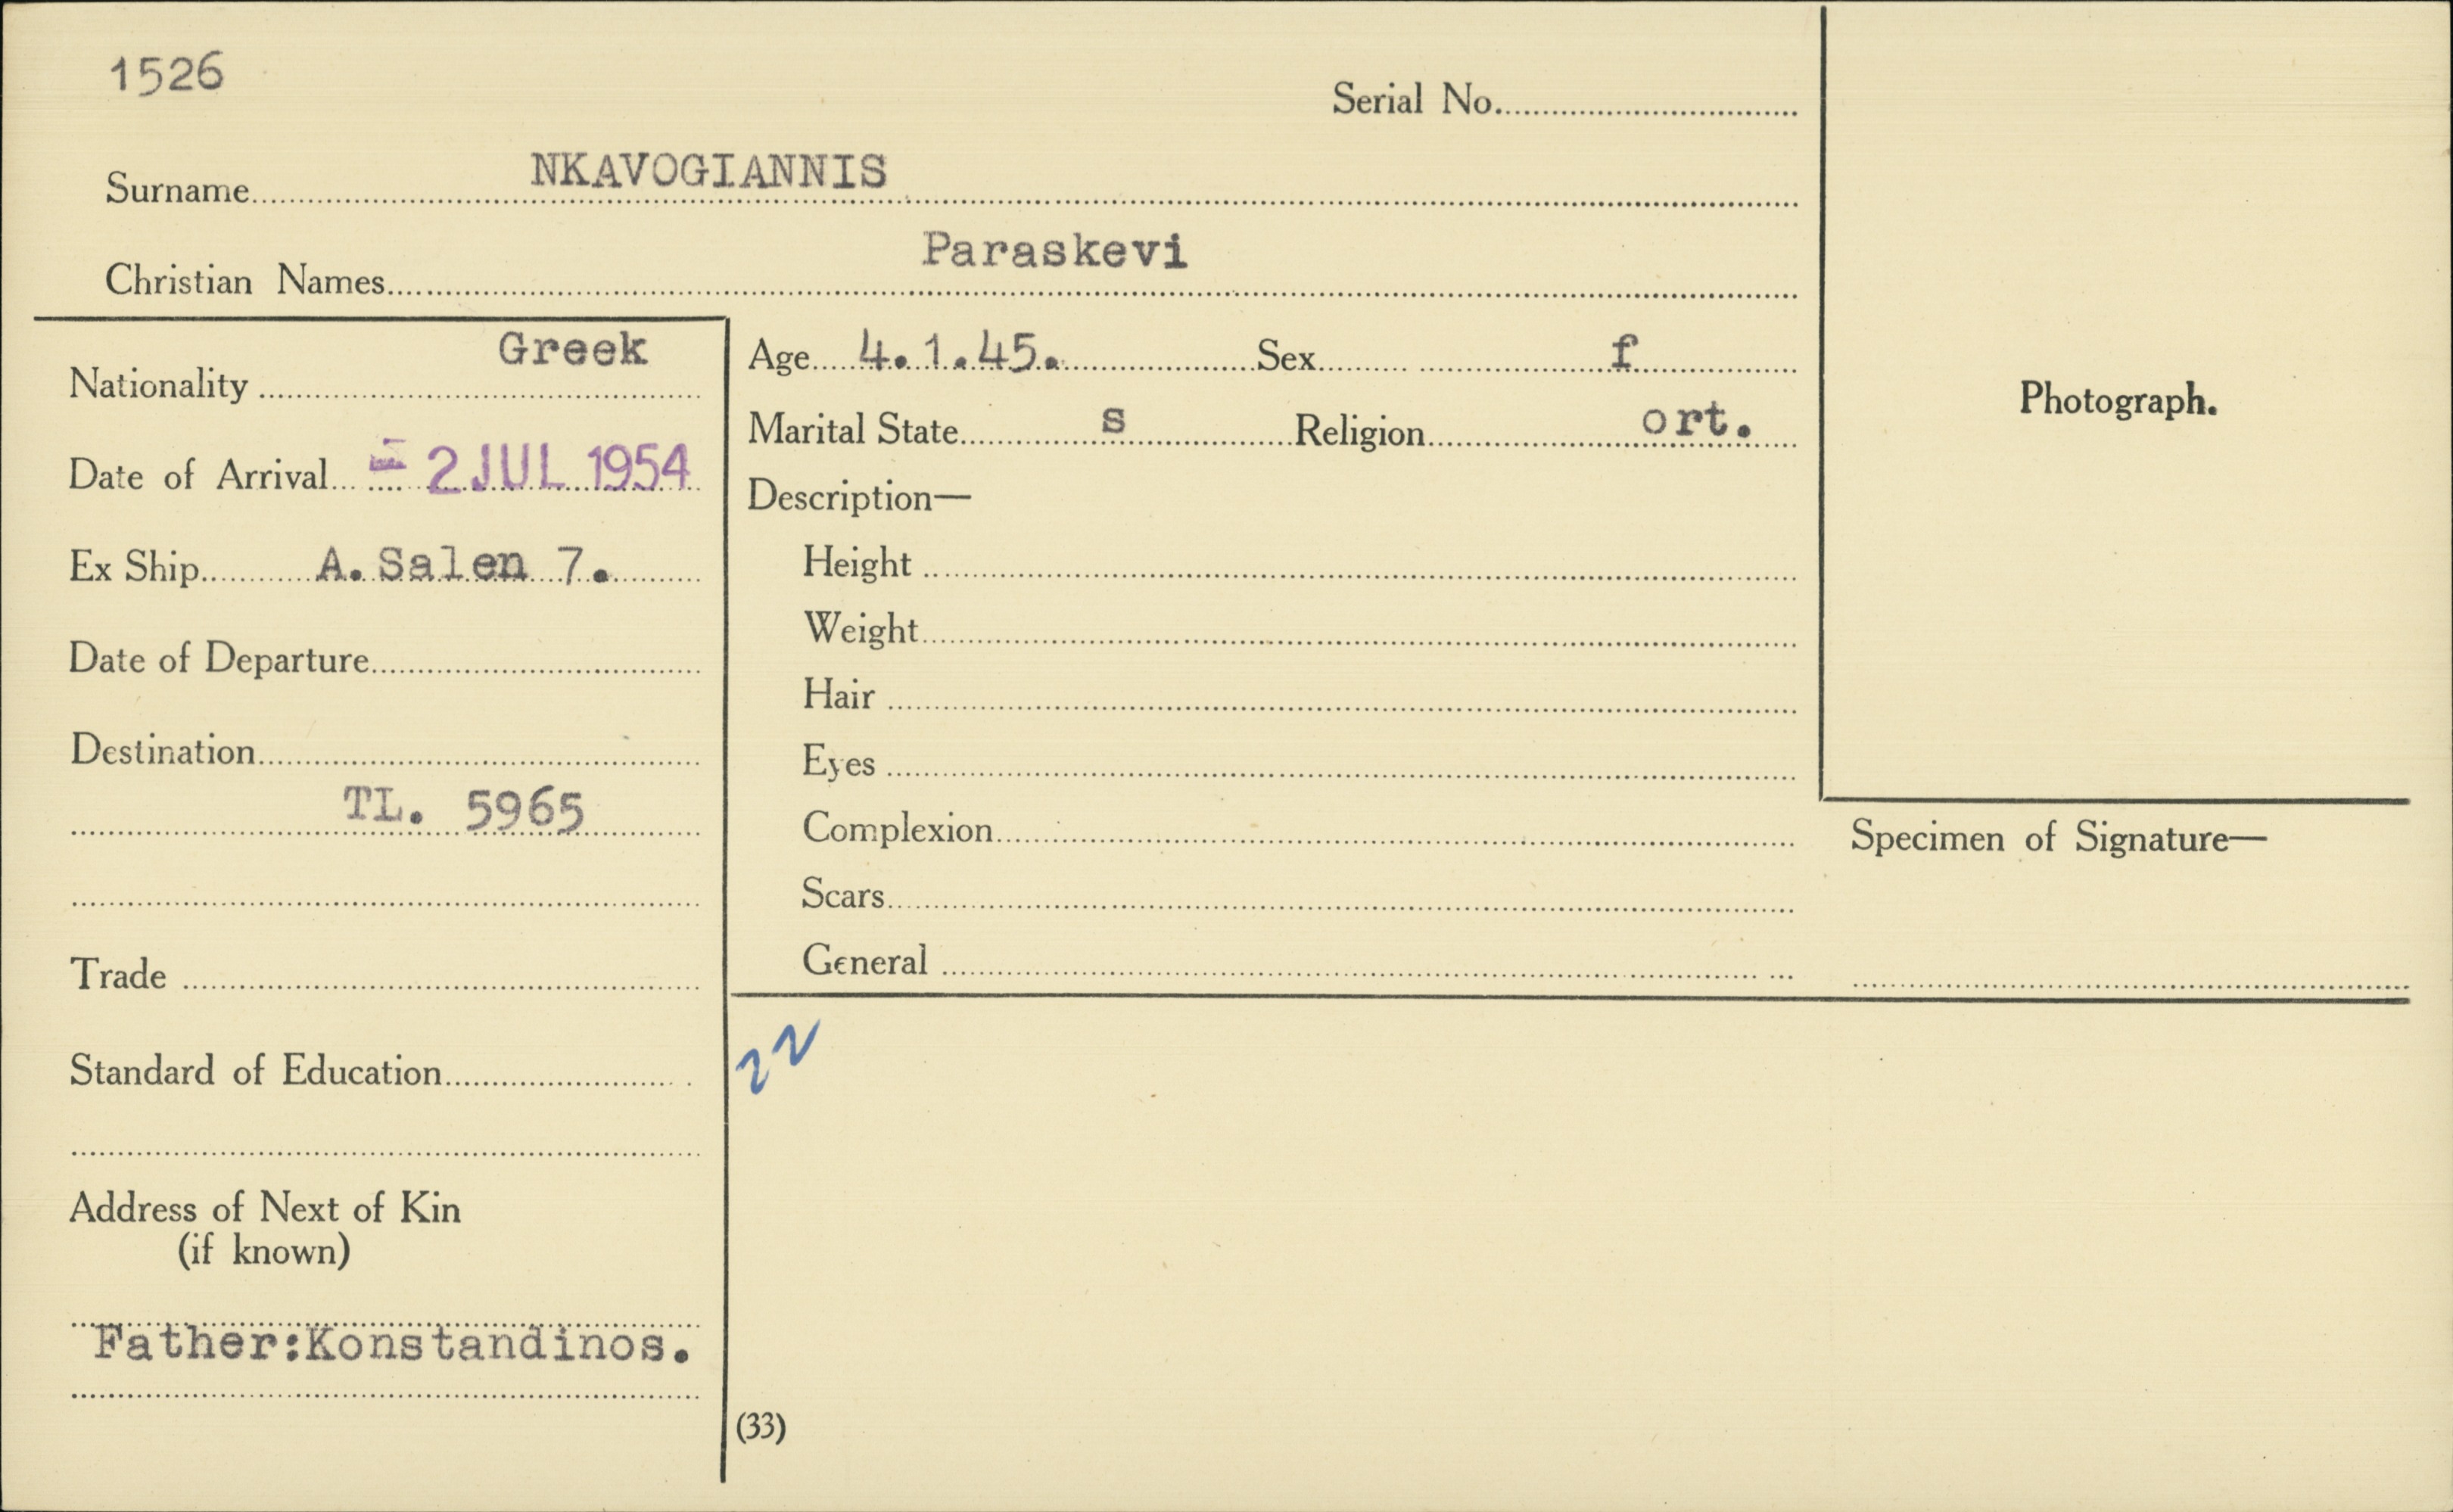 1526
Serial No.
Surname NKAVOGIANNIS
Christian Names Paraskevi
Nationality Greek
Date of Arrival - 2 JUL 1954
Ex Ship A. Salen 7.
Date of Departure
Destination
TL. 5965
Trade
Standard of Education
Address of Next of Kin
(if known)
Father:Konstandinos.
Age 4.1.45. Sex f
Marital State s Religion ort.
Description—
Height
Weight
Hair
Eyes
Complexion
Scars
General
22
(33)
Photograph.
Specimen of Signature—